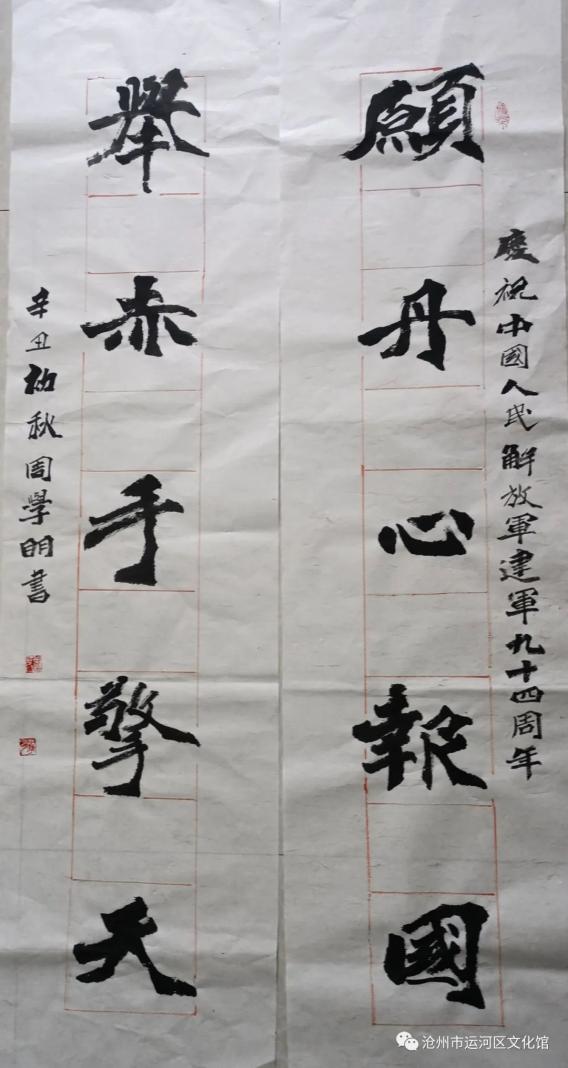 慶祝中國人民解放軍建軍九十四周年
願丹心報國
舉赤手擎天
辛丑初秋周學明書
沧州市运河区文化馆